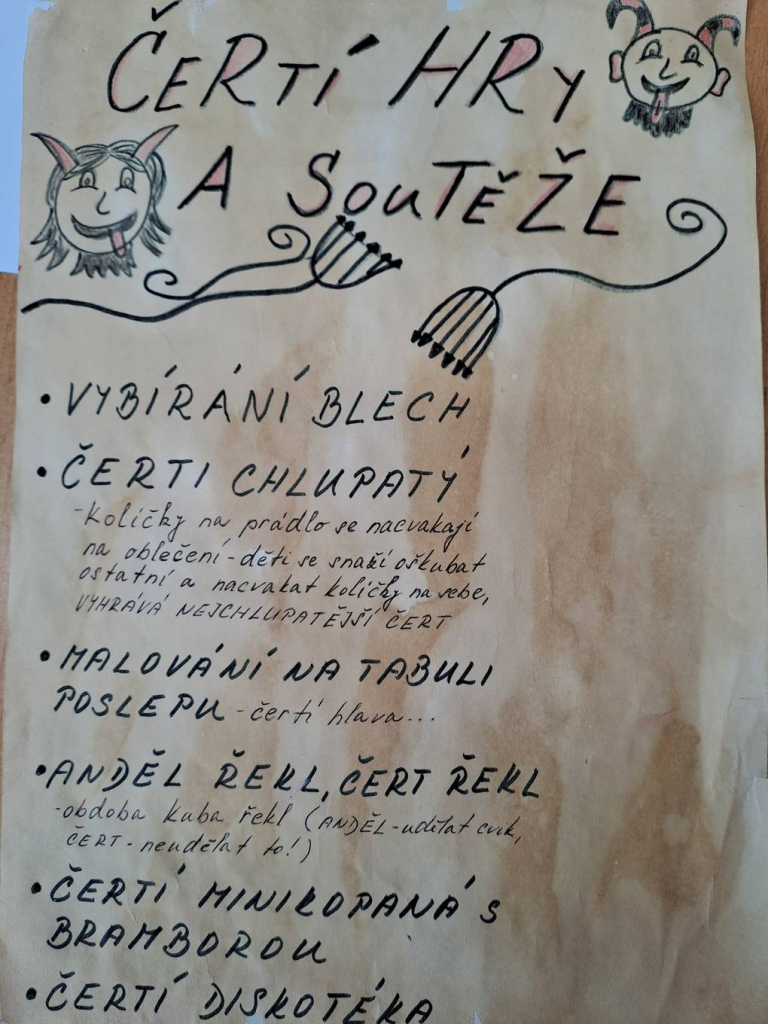 ČERTÍ HRY
A SOUTĚŽE
• VYBÍRÁNÍ BLECH
• ČERTI CHLUPATÝ
-kolíčky na prádlo se nacvakají
na oblečení - děti se snaží oškubat
ostatní a nacvakat kolíčky na sebe,
VYHRÁVÁ NEJCHLUPATĚJŠÍ ČERT
• MALOVÁNÍ NA TABULI
POSLEPU - čertí hlava...
• ANDĚL ŘEKL, ČERT ŘEKL
-obdoba kuba řekl (ANDĚL-udělat cvik,
ČERT - neudělat to!)
• ČERTÍ MINIKOPANÁ S
BRAMBOROU
• ČERTÍ DISKOTÉKA